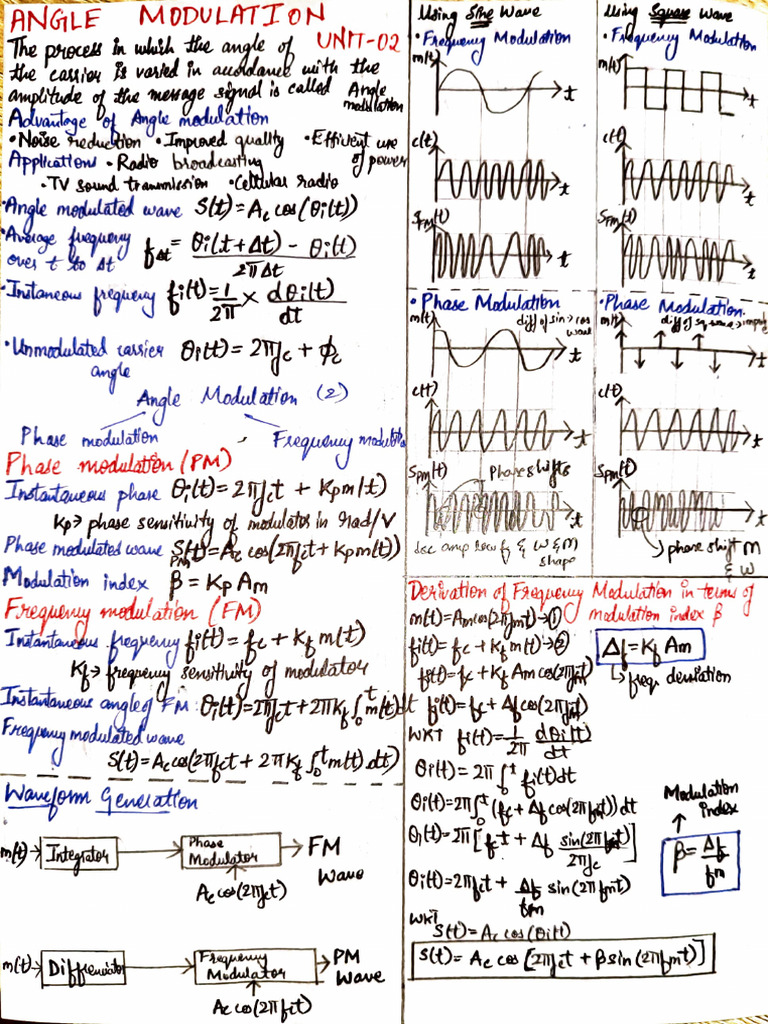 ANGLE MODULATION
UNIT-02
The process in which the angle of
the carrier is varied in accordance with the
amplitude of the message signal is called Angle
modulation
Advantage of Angle modulation
• Noise reduction • Improved quality • Efficient use
of power
Applications • Radio broadcasting
• TV sound transmission • Cellular radio
• Angle modulated wave S(t) = Ac cos(θi(t))
• Average frequency
over t to Δt
fΔt = θi(t+Δt) - θi(t) / 2πΔt
• Instaneous frequency fi(t) = 1/2π × dθi(t)/dt
• Unmodulated carrier
angle
θi(t) = 2πfc + φc
Angle Modulation (2)
Phase modulation
Frequency modulatio
Phase modulation (PM)
Instantaneous phase θi(t) = 2πfct + Kpm(t)
Kp→ phase sensitivity of modulator in rad/V
Phase modulated wave SPM(t) = Ac cos(2πfct + Kpm(t))
Modulation index β = Kp Am
Frequency modulation (FM)
Instantaneous frequency fi(t) = fc + Kf m(t)
Kf→ frequency sensitivity of modulator
Instantaneous angle of FM: θi(t) = 2πfct + 2πKf ∫₀ᵗ m(t) dt
Frequency modulated wave
S(t) = Ac cos(2πfct + 2πKf ∫₀ᵗ m(t) dt)
Waveform Generation
m(t)→ Integrator
Phase
Modulator
FM
Wave
Ac cos(2πfct)
m(t)→ Differniator
Frequency
Modulator
PM
Wave
Ac cos(2πfct)
Using Sine Wave
• Frequency Modulation
m(t)
t
c(t)
t
SFM(t)
t
• Phase Modulation
m(t)
diff of sin→cos
wave
t
c(t)
t
SPM(t)
Phase shifts
t
shape
Using Square Wave
• Frequency Modulation
m(t)
t
c(t)
t
SFM(t)
t
• Phase Modulation.
m(t)
t
c(t)
t
SPM(t)
t
→ phase shift M
& W
Derivation of Frequency Modulation in terms of
modulation index β
m(t) = Am cos(2πfmt)→①
fi(t) = fc + Kf m(t)→②
fi(t) = fc + Kf Am cos(2πfmt)
Δf = Kf Am
↳ freq. deviation
fi(t) = fc + Δf cos(2πfmt)
WKT fi(t) = 1/2π dθi(t)/dt
θi(t) = 2π ∫₀ᵗ fi(t) dt
θi(t) = 2π ∫₀ᵗ (fc + Δf cos(2πfmt)) dt
θi(t) = 2π [fct + Δf sin(2πfmt)/2πfc]
θi(t) = 2πfct + Δf/fm sin(2πfmt)
Modulation
index
β = Δf/fm
WKT
S(t) = Ac cos(θi(t))
S(t) = Ac cos [2πfct + β sin(2πfmt)]